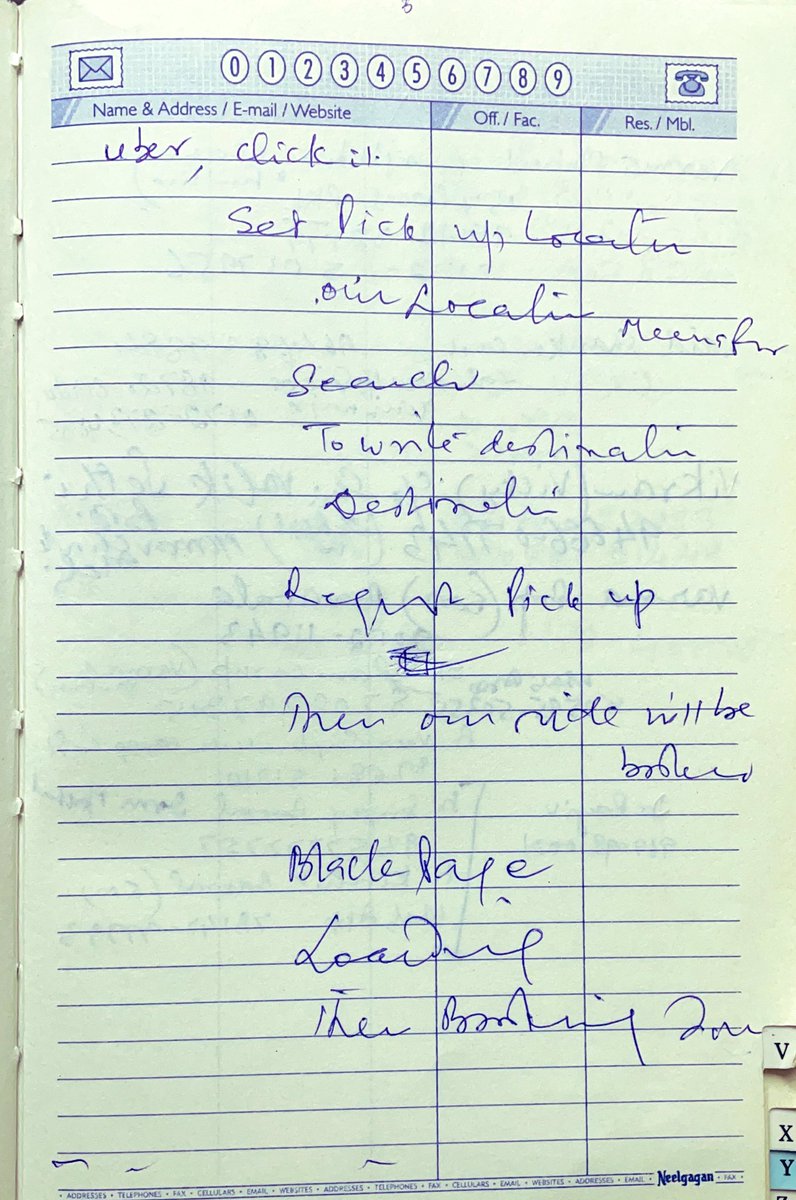 0 1 2 3 4 5 6 7 8 9
Name & Address / E-mail / Website Off. / Fac. Res. / Mbl.
uber, click it.
Set Pick up Locatin
our Locatin
Search
To write destinatin
Destinatin
Request Pick up
Then our ride will be
booked
Black Page
Loading
Then Booking
V
X
Y
ADDRESSES • TELEPHONES • FAX • CELLULARS • EMAIL • WEBSITES • ADDRESSES • TELEPHONES • FAX • CELLULARS • EMAIL • WEBSITES • ADDRESSES • EMAIL • Neelgagan • FAX •